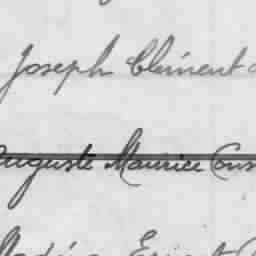 Joseph Clément
Auguste Maurice Cons